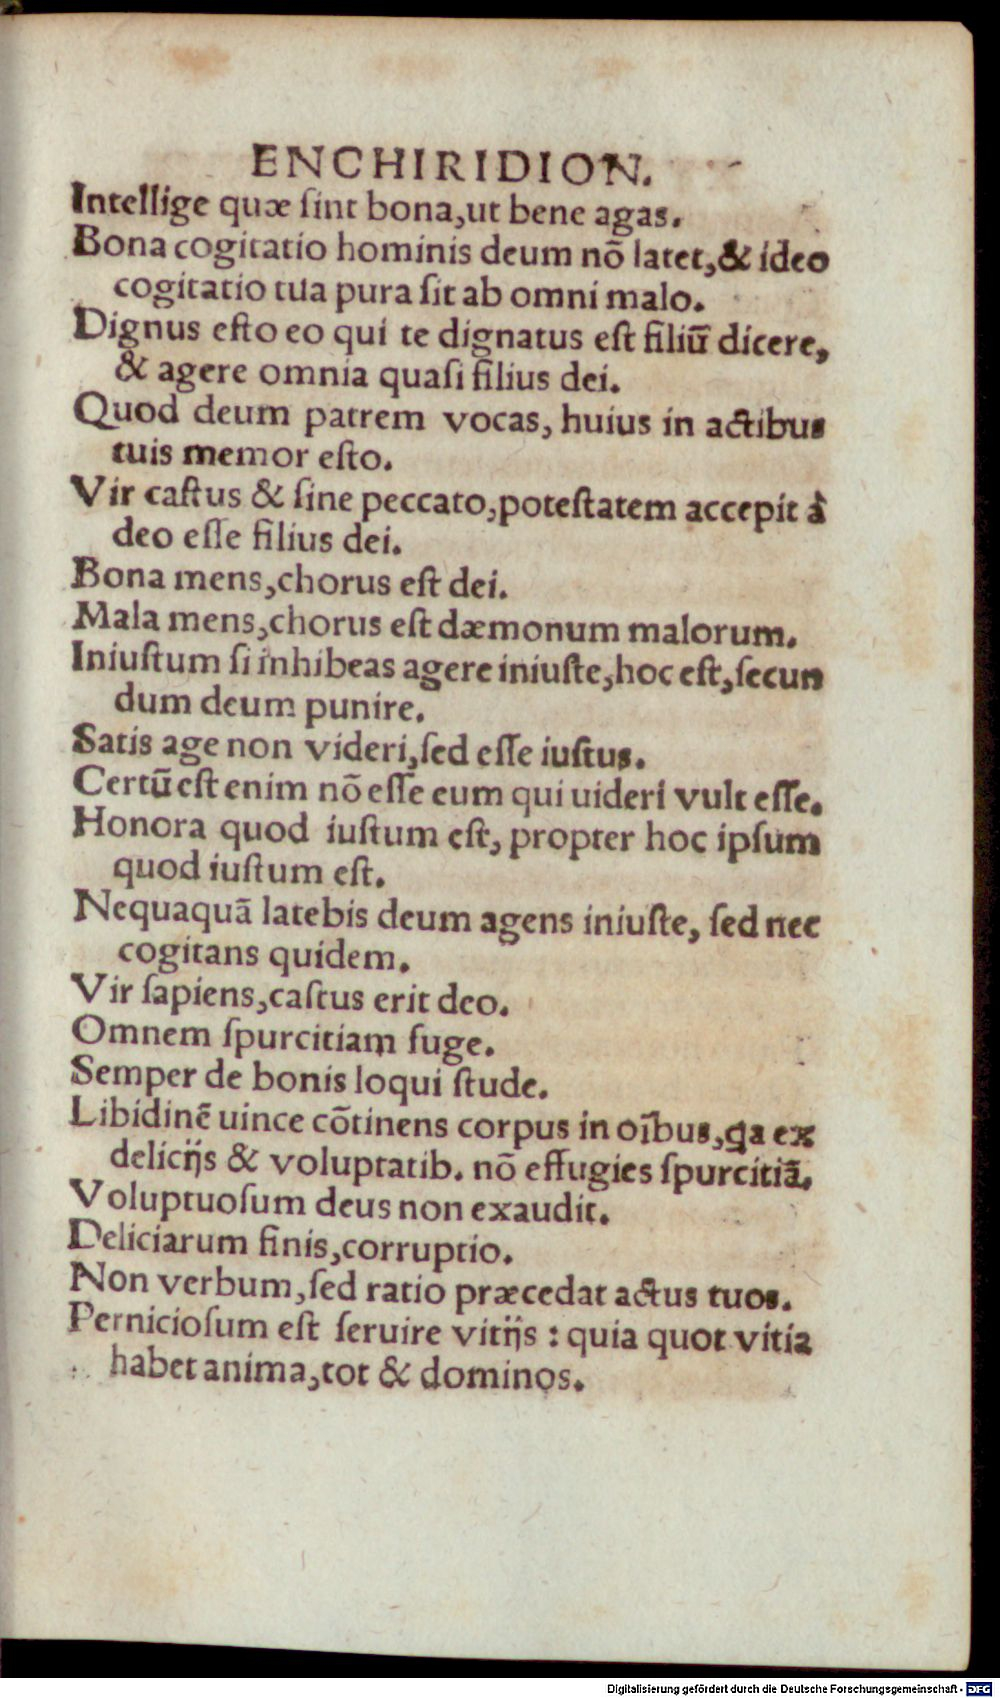 ENCHIRIDION.
Intellige quæ ſint bona,ut bene agas.
Bona cogitatio hominis deum nō latet,& ideo
cogitatio tua pura ſit ab omni malo.
Dignus eſto eo qui te dignatus eſt filiū dicere,
& agere omnia quaſi filius dei.
Quod deum patrem vocas, huius in actibus
tuis memor eſto.
Vir caſtus & ſine peccato,poteſtatem accepit à
deo eſſe filius dei.
Bona mens,chorus eſt dei.
Mala mens,chorus eſt dæmonum malorum.
Iniuſtum ſi inhibeas agere iniuſte,hoc eſt,ſecun
dum deum punire.
Satis age non videri,ſed eſſe iuſtus.
Certū eſt enim nō eſſe eum qui uideri vult eſſe.
Honora quod iuſtum eſt, propter hoc ipſum
quod iuſtum eſt.
Nequaquā latebis deum agens iniuſte, ſed nec
cogitans quidem.
Vir ſapiens,caſtus erit deo.
Omnem ſpurcitiam fuge.
Semper de bonis loqui ſtude.
Libidinē uince cōtinens corpus in oībus,ꝗa ex
delicijs & voluptatib. nō effugies ſpurcitiā.
Voluptuoſum deus non exaudit.
Deliciarum finis,corruptio.
Non verbum,ſed ratio præcedat actus tuos.
Pernicioſum eſt ſeruire vitijs : quia quot vitia
habet anima,tot & dominos.
Digitalisierung gefördert durch die Deutsche Forschungsgemeinschaft - DFG